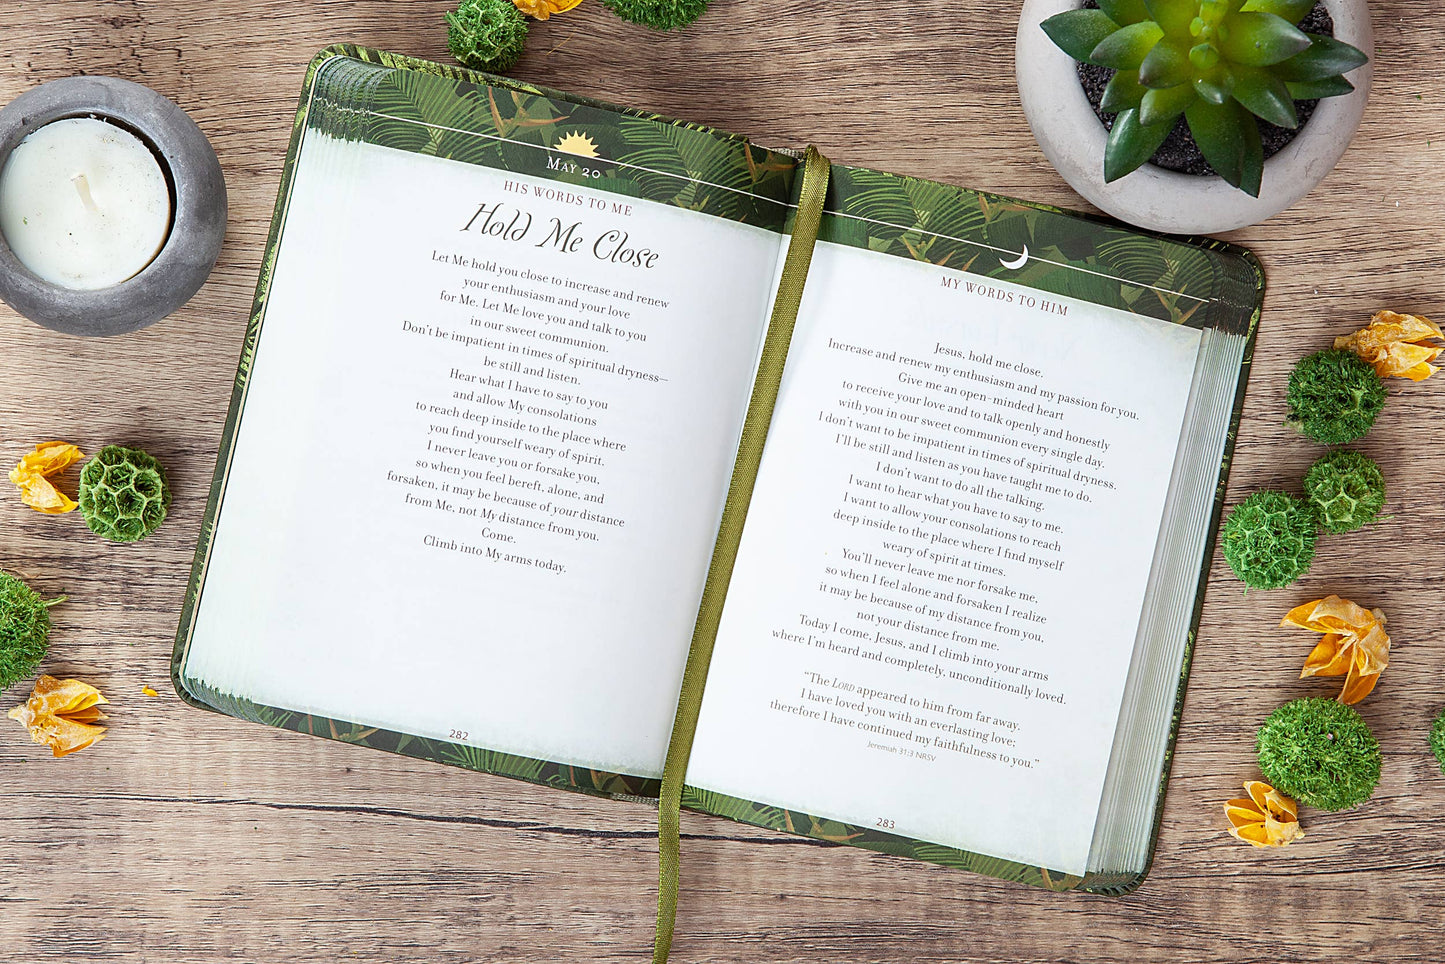 May 20
HIS WORDS TO ME
Hold Me Close
Let Me hold you close to increase and renew
your enthusiasm and your love
for Me. Let Me love you and talk to you
in our sweet communion.
Don't be impatient in times of spiritual dryness—
be still and listen.
Hear what I have to say to you
and allow My consolations
to reach deep inside to the place where
you find yourself weary of spirit.
I never leave you or forsake you,
so when you feel bereft, alone, and
forsaken, it may be because of your distance
from Me, not My distance from you.
Come.
Climb into My arms today.
282
MY WORDS TO HIM
Jesus, hold me close.
Increase and renew my enthusiasm and my passion for you.
Give me an open-minded heart
to receive your love and to talk openly and honestly
with you in our sweet communion every single day.
I don't want to be impatient in times of spiritual dryness.
I'll be still and listen as you have taught me to do.
I don't want to do all the talking.
I want to hear what you have to say to me.
I want to allow your consolations to reach
deep inside to the place where I find myself
weary of spirit at times.
You'll never leave me nor forsake me,
so when I feel alone and forsaken I realize
it may be because of my distance from you,
not your distance from me.
Today I come, Jesus, and I climb into your arms
where I'm heard and completely, unconditionally loved.
"The LORD appeared to him from far away.
I have loved you with an everlasting love;
therefore I have continued my faithfulness to you."
Jeremiah 31:3 NRSV
283